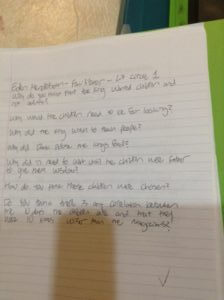 Why do you think that the king wanted children and
not adults?
Why would the children need to be fair looking?
Why did the king want to train people?
Why did Daniel refuse the king's food?
Why did it need to wait until the children were
to give them wisdom?
How do you think these children were chosen?
Do you think there is any correlation between
the the children ate and that they
were 10 times wiser than the magicians?